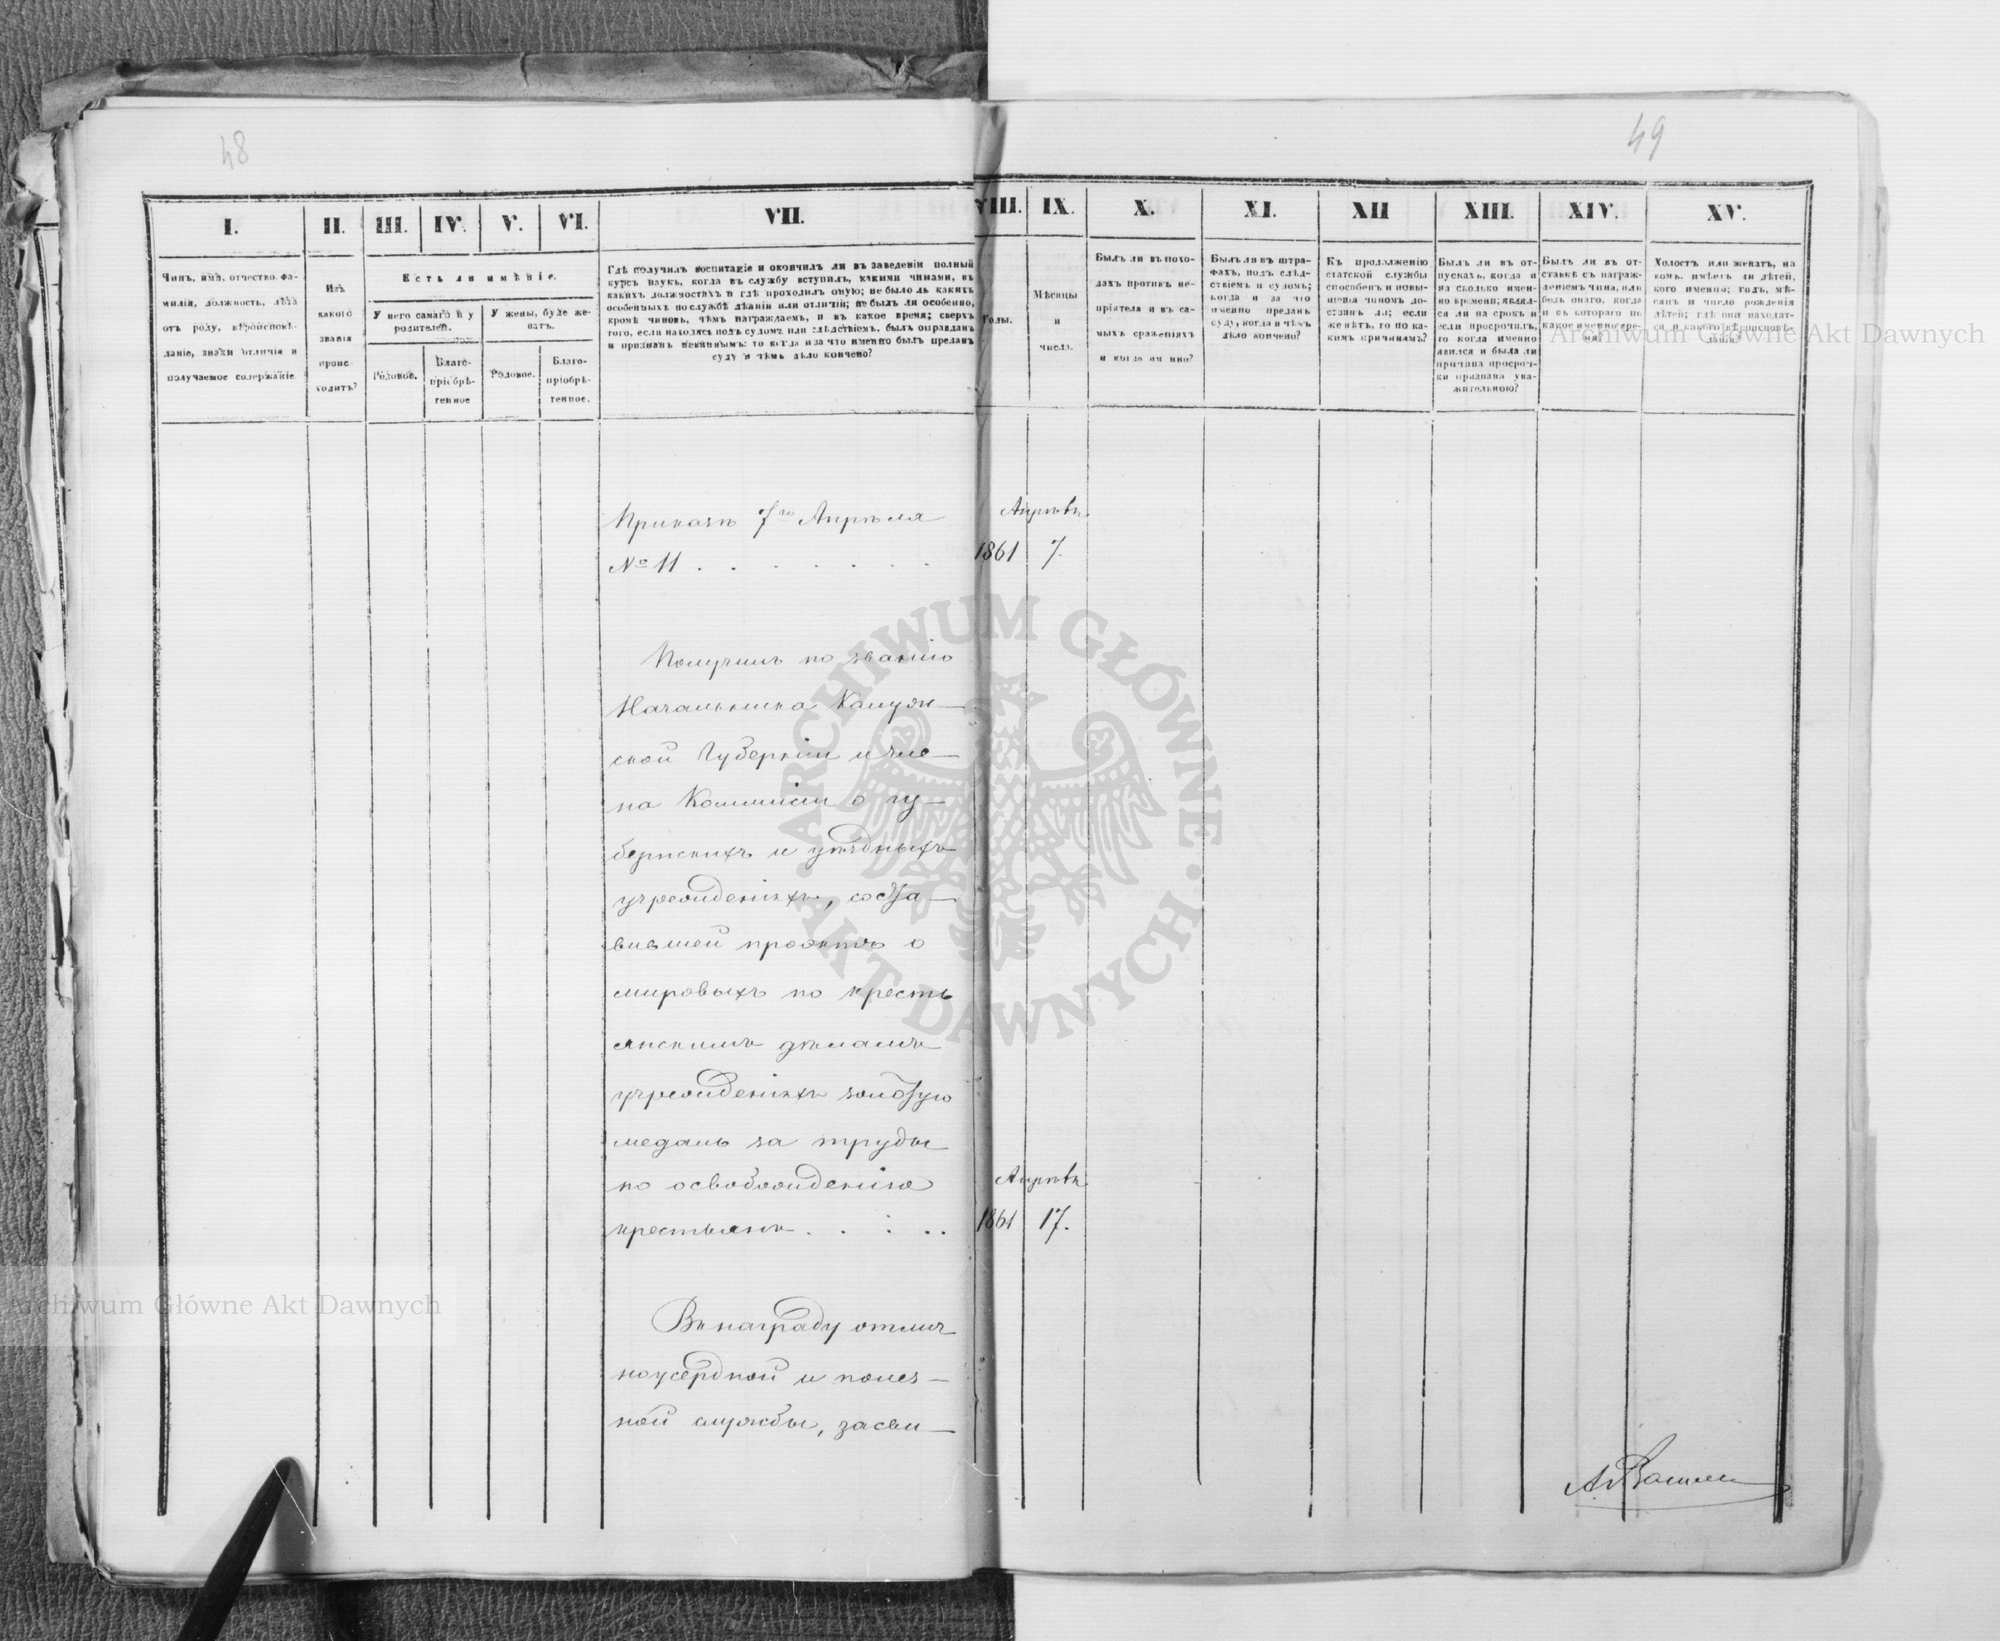 48
49
I.
II.
III.
IV.
V.
VI.
VII.
VIII.
IX.
X.
XI.
XII
XIII.
XIV.
XV.
Чинъ, имя, отчество, фа-
милія, должность, лѣта
отъ роду, вѣроисповѣ-
даніе, знаки отличія и
получаемое содержаніе.
Изъ
какого
званія
проис-
ходитъ?
Есть ли имѣніе.
У него самаго и у
родителей.
У жены, буде же-
натъ.
Родовое.
Благо-
пріобрѣ-
тенное
Родовое.
Благо-
пріобрѣ-
тенное.
Гдѣ получилъ воспитаніе и окончилъ ли въ заведеніи полный
курсъ наукъ, когда въ службу вступилъ, какими чинами, въ
какихъ должностяхъ и гдѣ проходилъ оную; не было ль какихъ
особенныхъ по службѣ дѣяній или отличій; не былъ ли особенно,
кромѣ чиновъ, чѣмъ награждаемъ, и въ какое время; сверхъ
того, если находясь подъ судомъ или слѣдствіемъ, былъ оправданъ
и признанъ невиннымъ: то когда и за что именно былъ преданъ
суду и чѣмъ дѣло кончено?
Годы.
Мѣсяцы
и
числа.
Былъ ли въ похо-
дахъ противъ не-
пріятеля и въ са-
мыхъ сраженіяхъ
и когда именно?
Былъ ли въ штра-
фахъ, подъ слѣд-
ствіемъ и судомъ;
когда и за что
именно преданъ
суду, когда и чѣмъ
дѣло кончено?
Къ продолженію
статской службы
способенъ и повы-
шенія чиномъ до-
стоинъ ли; если
же нѣтъ, то по ка-
кимъ причинамъ?
Былъ ли въ от-
пускахъ, когда и
на сколько имен-
но времени; являл-
ся ли на срокъ и
если просрочилъ,
то когда именно
явился и была ли
причина просроч-
ки признана ува-
жительною?
Былъ ли въ от-
ставкѣ съ награж-
деніемъ чина, или
безъ онаго, когда
и съ котораго по
какое именно вре-
мя?
Холостъ или женатъ, на
комъ, имѣетъ ли дѣтей,
кого именно; годъ, мѣ-
сяцъ и число рожденія
дѣтей; гдѣ они находят-
ся и какого вѣроисповѣ-
данія?
Приказъ 7го Апрѣля
№ 11 . . . . . . .
Апрѣль
1861 7.
Получилъ по званію
Начальника Калуж-
ской Губерніи и чле-
на Коммисіи о гу-
бернскихъ и уѣздныхъ
учрежденіяхъ, соста-
вившей проэктъ о
мировыхъ по кресть
янскимъ дѣламъ
учрежденіяхъ золотую
медаль за труды
по освобожденію
крестьянъ . . . . .
Апрѣль
1861 17.
Въ награду отлич
ноусердной и полез-
ной службы, засви-
ARCHIWUM GŁÓWNE · AKT DAWNYCH ·
Archiwum Główne Akt Dawnych
Archiwum Główne Akt Dawnych